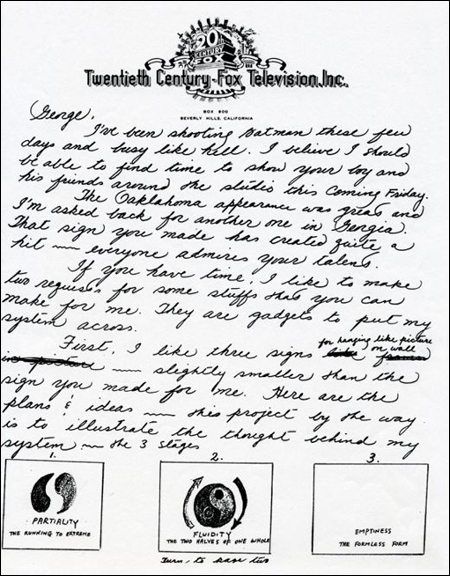 20
CENTURY
FOX
Twentieth Century-Fox Television, Inc.
BOX 900
BEVERLY HILLS, CALIFORNIA
George,
I've been shooting Batman these few
days and busy like hell. I believe I should
be able to find time to show your boy and
his friends around the studio this coming Friday.
The Oaklahoma appearance was great and
I'm asked back for another one in Georgia.
That sign you made has created quite a
hit — everyone admires your talent.
If you have time, I like to make
two requiss for some stuffs that you can
make for me. They are gadgets to put my
system across.
First, I like three signs for hanging like picture on wall
— slightly smaller than the
sign you made for me. Here are the
plans & ideas — this project by the way
is to illustrate the thought behind my
system — the 3 stages
1.
PARTIALITY
THE RUNNING TO EXTREME
2.
FLUIDITY
THE TWO HALVES OF ONE WHOLE
3.
EMPTINESS
THE FORMLESS FORM
Turn to page two